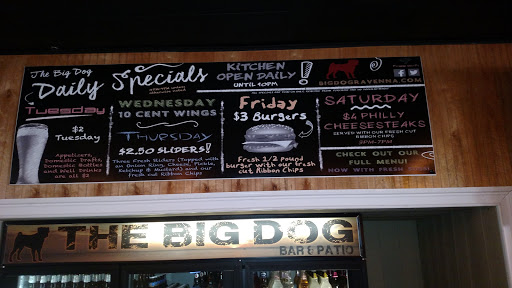 The Big Dog
Daily Specials
KITCHEN
OPEN DAILY
UNTIL 10PM
!
BIGDOGRAVENNA.COM
Tuesday
$2
Tuesday
Appetizers,
Domestic Drafts,
Domestic Bottles
and Well Drinks
are all $2
WEDNESDAY
10 CENT WINGS
THURSDAY
$2.50 SLIDERS!
Three Fresh Sliders (Topped with
an Onion Ring, Cheese, Pickle,
Ketchup & Mustard) and our
fresh cut Ribbon Chips
Friday
$3 Burgers
Fresh 1/2 pound
burger with our fresh
cut Ribbon Chips
SATURDAY
$4 PHILLY
CHEESESTEAKS
SERVED WITH OUR FRESH CUT
RIBBON CHIPS
CHECK OUT OUR
FULL MENU!
NOW WITH FRESH
THE BIG DOG
BAR & PATIO